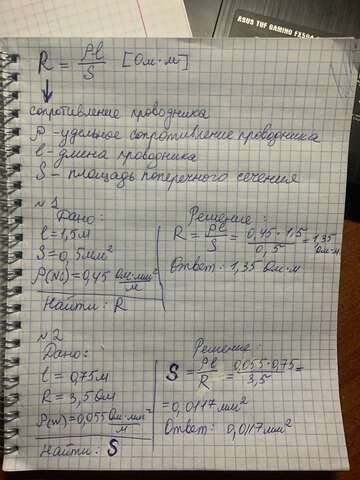 ASUS TUF GAMING FX504
R = ρl/S [Ом·м]
сопротивление проводника
ρ - удельное сопротивление проводника
l - длина проводника
S - площадь поперечного сечения
№1
Дано:
l = 1,5м
S = 0,5мм²
ρ(Ni) = 0,45 Ом·мм²/м
Найти: R
Решение:
R = ρl/S = 0,45·1,5/0,5 = 1,35 Ом·м
Ответ: 1,35 Ом·м
№2
Дано:
l = 0,75м
R = 3,5 Ом
ρ(W) = 0,055 Ом·мм²/м
Найти: S
Решение:
S = ρl/R = 0,055·0,75/3,5 =
= 0,0117 мм²
Ответ: 0,0117 мм²